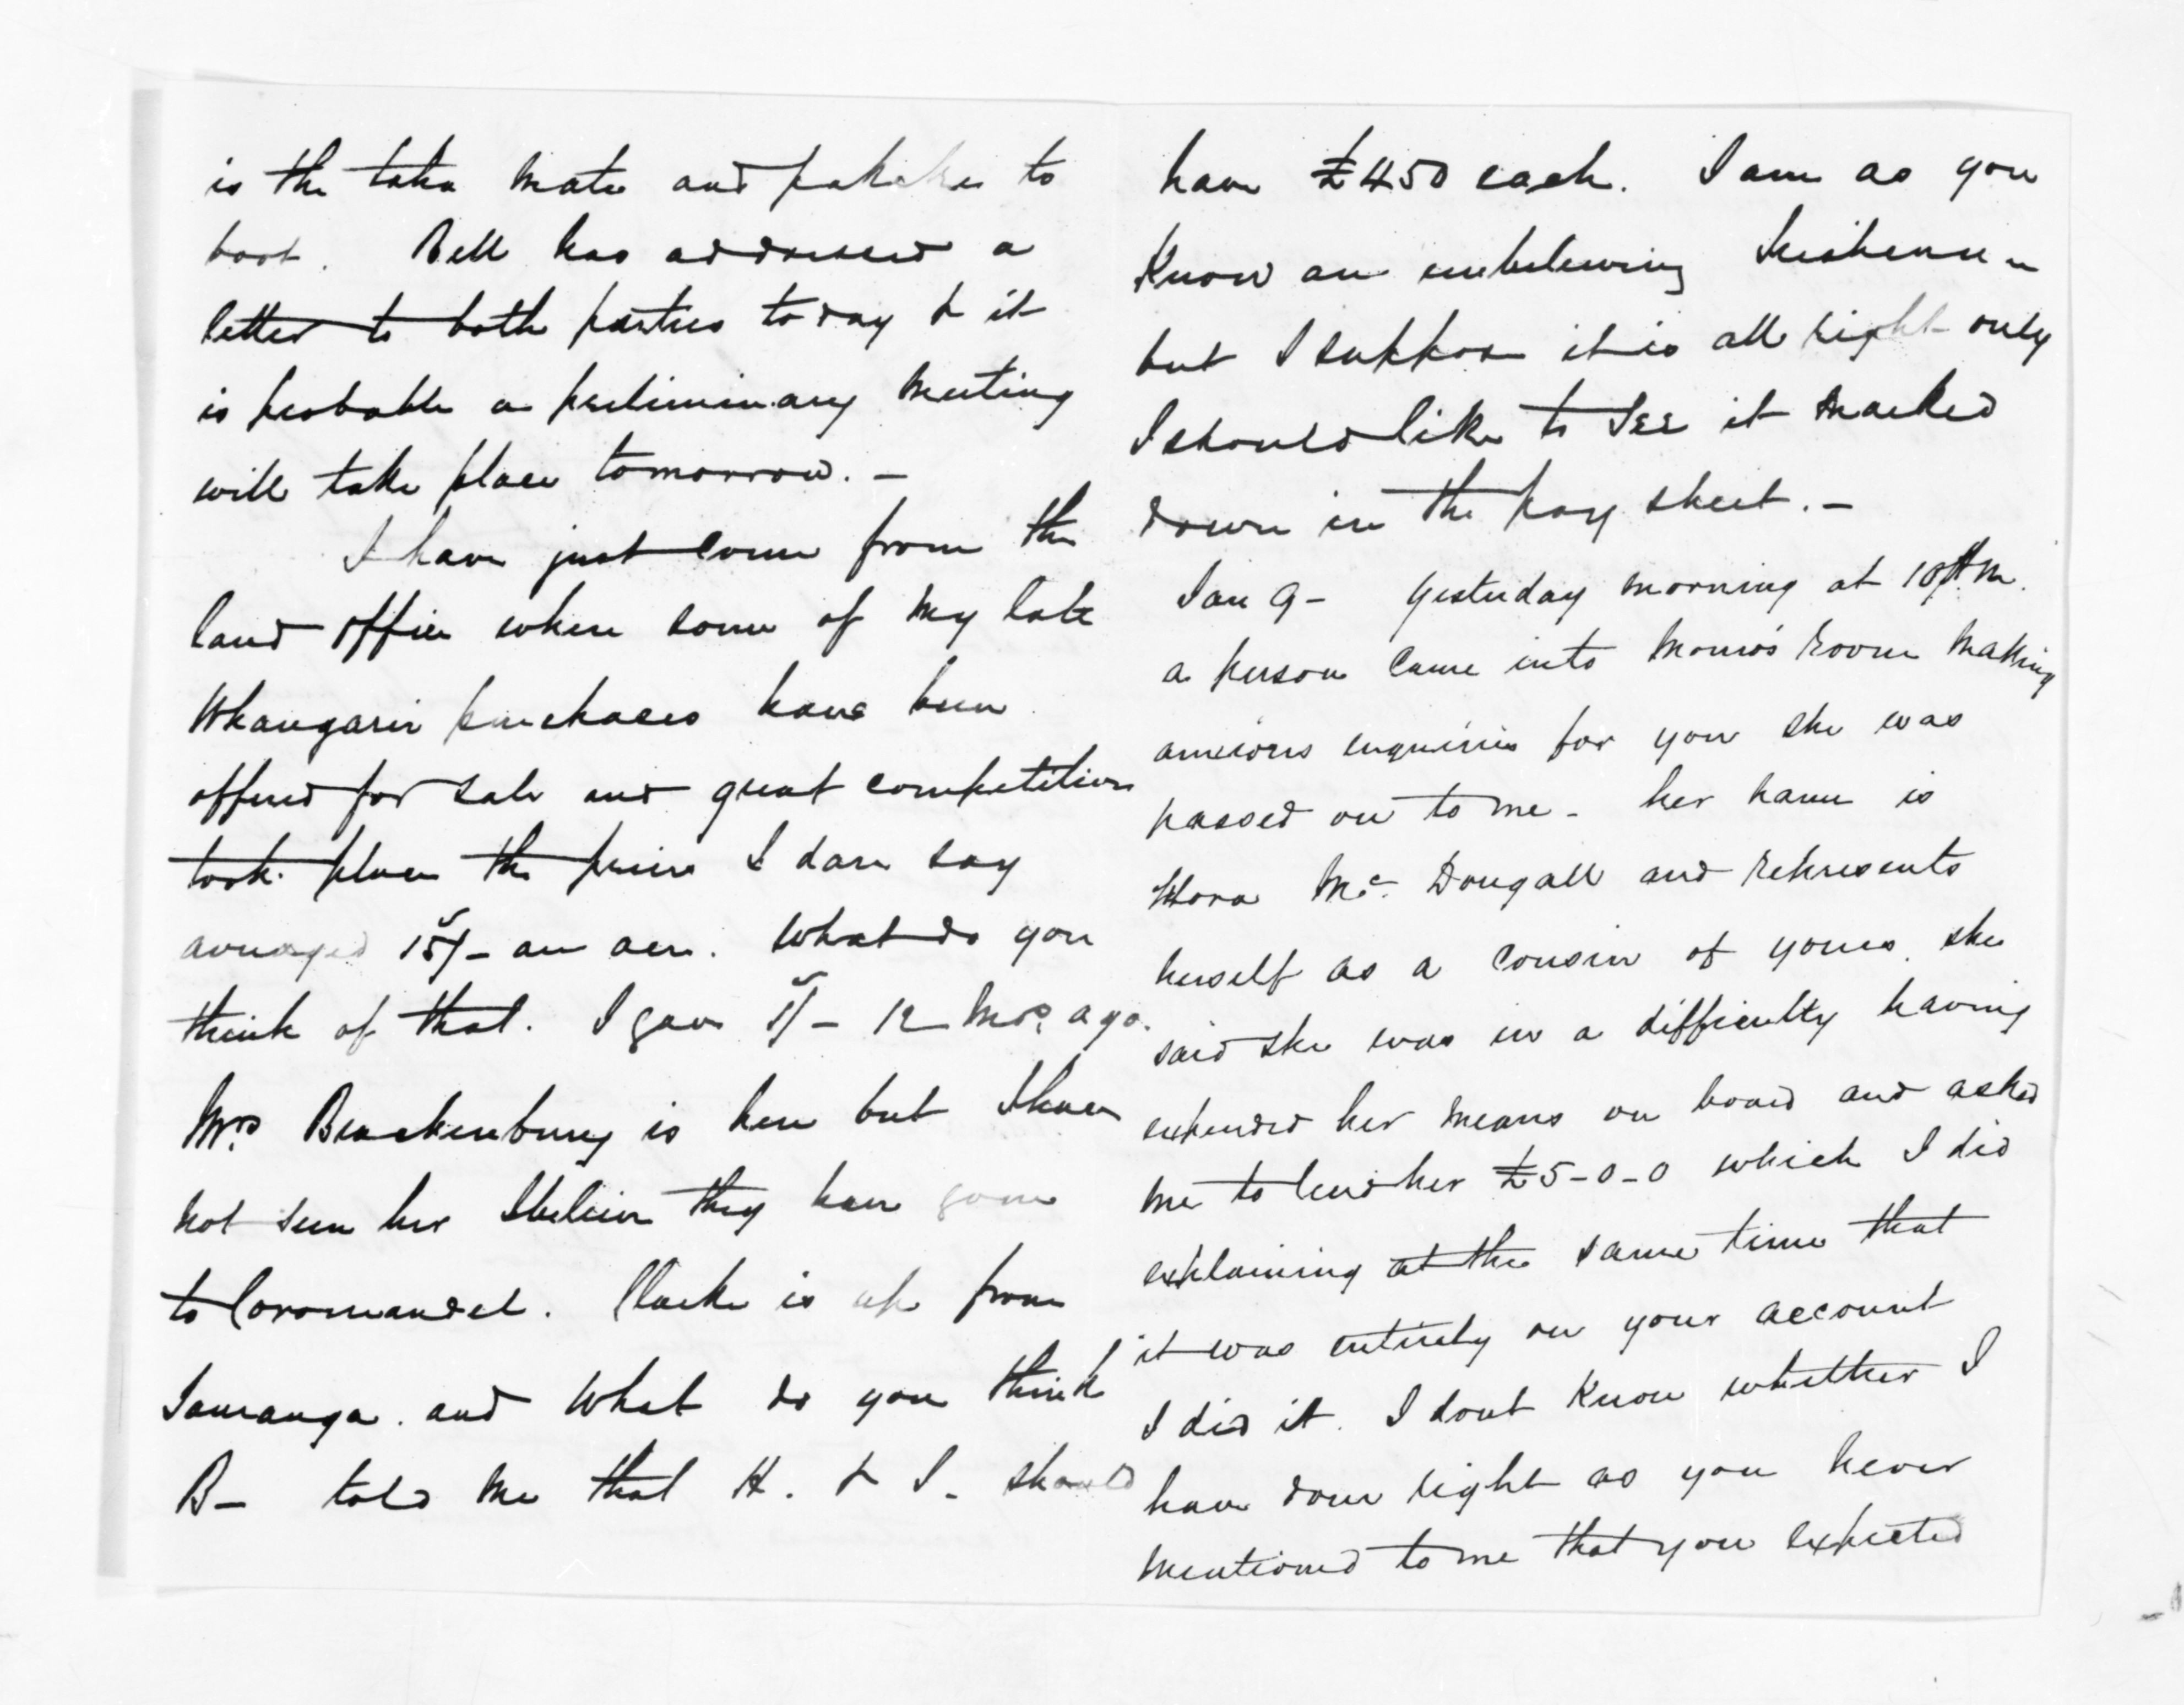 is the take mate and pakehas to
boot. Bell has addressed a
letter to both parties today & it
is probable a preliminary meeting
will take place tomorrow. –
I have just come from the
land office where some of my late
Whangarei purchases have been
offered for sale and great competition
took place the price I dare say
averaged 15/- an acre. What do you
think of that. I gave 5/- 12 mos. ago.
Mrs. Brackenbury is here but I have
not seen her I believe they have gone
to Coromandel. Clarke is up from
Tauranga. and what do you think
B– told me that H. & S. should
have £450 each. I am as you
know an unbelieving
but I suppose it is all right only
I should like to see it marked
down in the pay sheet. –
Jan 9 – Yesterday morning at 10 A.M.
a person came into room making
anxious enquiries for you she was
passed on to me – her name is
Mc. Dougall and represents
herself as a cousin of yours. she
said she was in a difficulty having
expended her means on board and asked
me to lend her £5-0-0 which I did
explaining at the same time that
it was entirely on your account
I did it. I dont know whether I
have done right as you never
mentioned to me that you expected